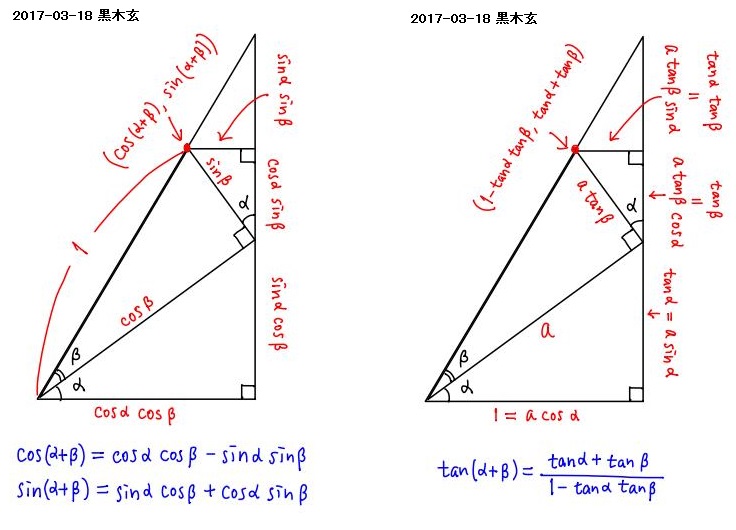 2017-03-18 黒木玄
(cos(α+β), sin(α+β))
sinα
sinβ
sinβ
cosα sinβ
α
1
sinα cosβ
cosβ
β
α
cosα cosβ
cos(α+β) = cosα cosβ − sinα sinβ
sin(α+β) = sinα cosβ + cosα sinβ
2017-03-18 黒木玄
(1−tanα tanβ, tanα+tanβ)
tanα tanβ
=
a tanβ sinα
a tanβ
tanβ
=
a tanβ cosα
α
tanα = a sinα
a
β
α
1 = a cosα
tan(α+β) = (tanα + tanβ)/(1 − tanα tanβ)